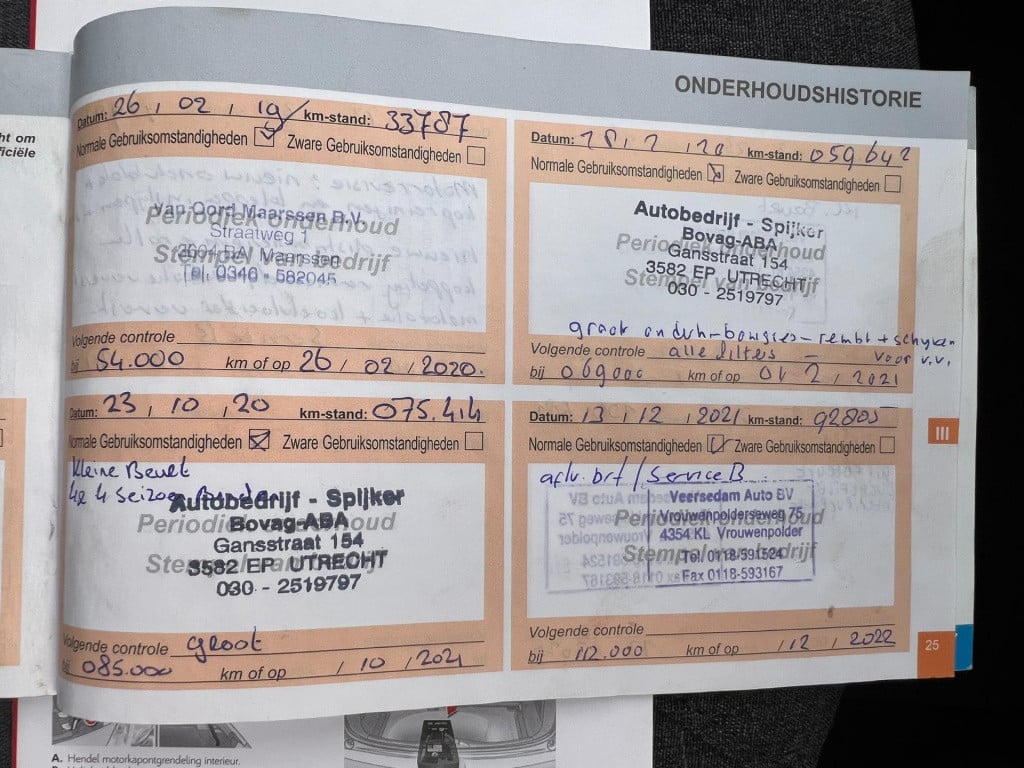 ht om
ficiële
ONDERHOUDSHISTORIE
Datum: 26 , 02 , 19 km-stand: 33787
Normale Gebruiksomstandigheden Zware Gebruiksomstandigheden
Van Oord Maarssen B.V.
Periodiek onderhoud
Straatweg 1
Stempel van bedrijf
Maarssen
Tel. 0346 - 582045
Volgende controle
bij 54.000 km of op 26 / 02 / 2020.
Datum: 18, 2, 20 km-stand: 059642
Normale Gebruiksomstandigheden Zware Gebruiksomstandigheden
Autobedrijf - Spijker
Bovag-ABA
Periodiek onderhoud
Gansstraat 154
3582 EP UTRECHT
Stempel van bedrijf
030 - 2519797
groot onderh - bougies - rembl + schijven
Volgende controle alle filters - voor v.v.
bij 069000 km of op 01 2 / 2021
Datum: 23 , 10 , 20 km-stand: 075.414
Normale Gebruiksomstandigheden Zware Gebruiksomstandigheden
Kleine Beurt
4x 4 Seizoen Banden
Autobedrijf - Spijker
Bovag-ABA
Periodiek onderhoud
Gansstraat 154
Stempel van bedrijf
3582 EP UTRECHT
030 - 2519797
Volgende controle groot
bij 085.000 km of op / 10 / 2021
Datum: 13 , 12 , 2021 km-stand: 92805
Normale Gebruiksomstandigheden Zware Gebruiksomstandigheden
aflv. brt / Service B
Veersedam Auto BV
Vrouwenpolderseweg 75
Periodiek onderhoud
4354 KL Vrouwenpolder
Stempel van bedrijf
Tel. 0118-591524
Fax 0118-593167
Volgende controle
bij 112.000 km of op / 12 / 2022
III
25
A. Hendel motorkapontgrendeling interieur.